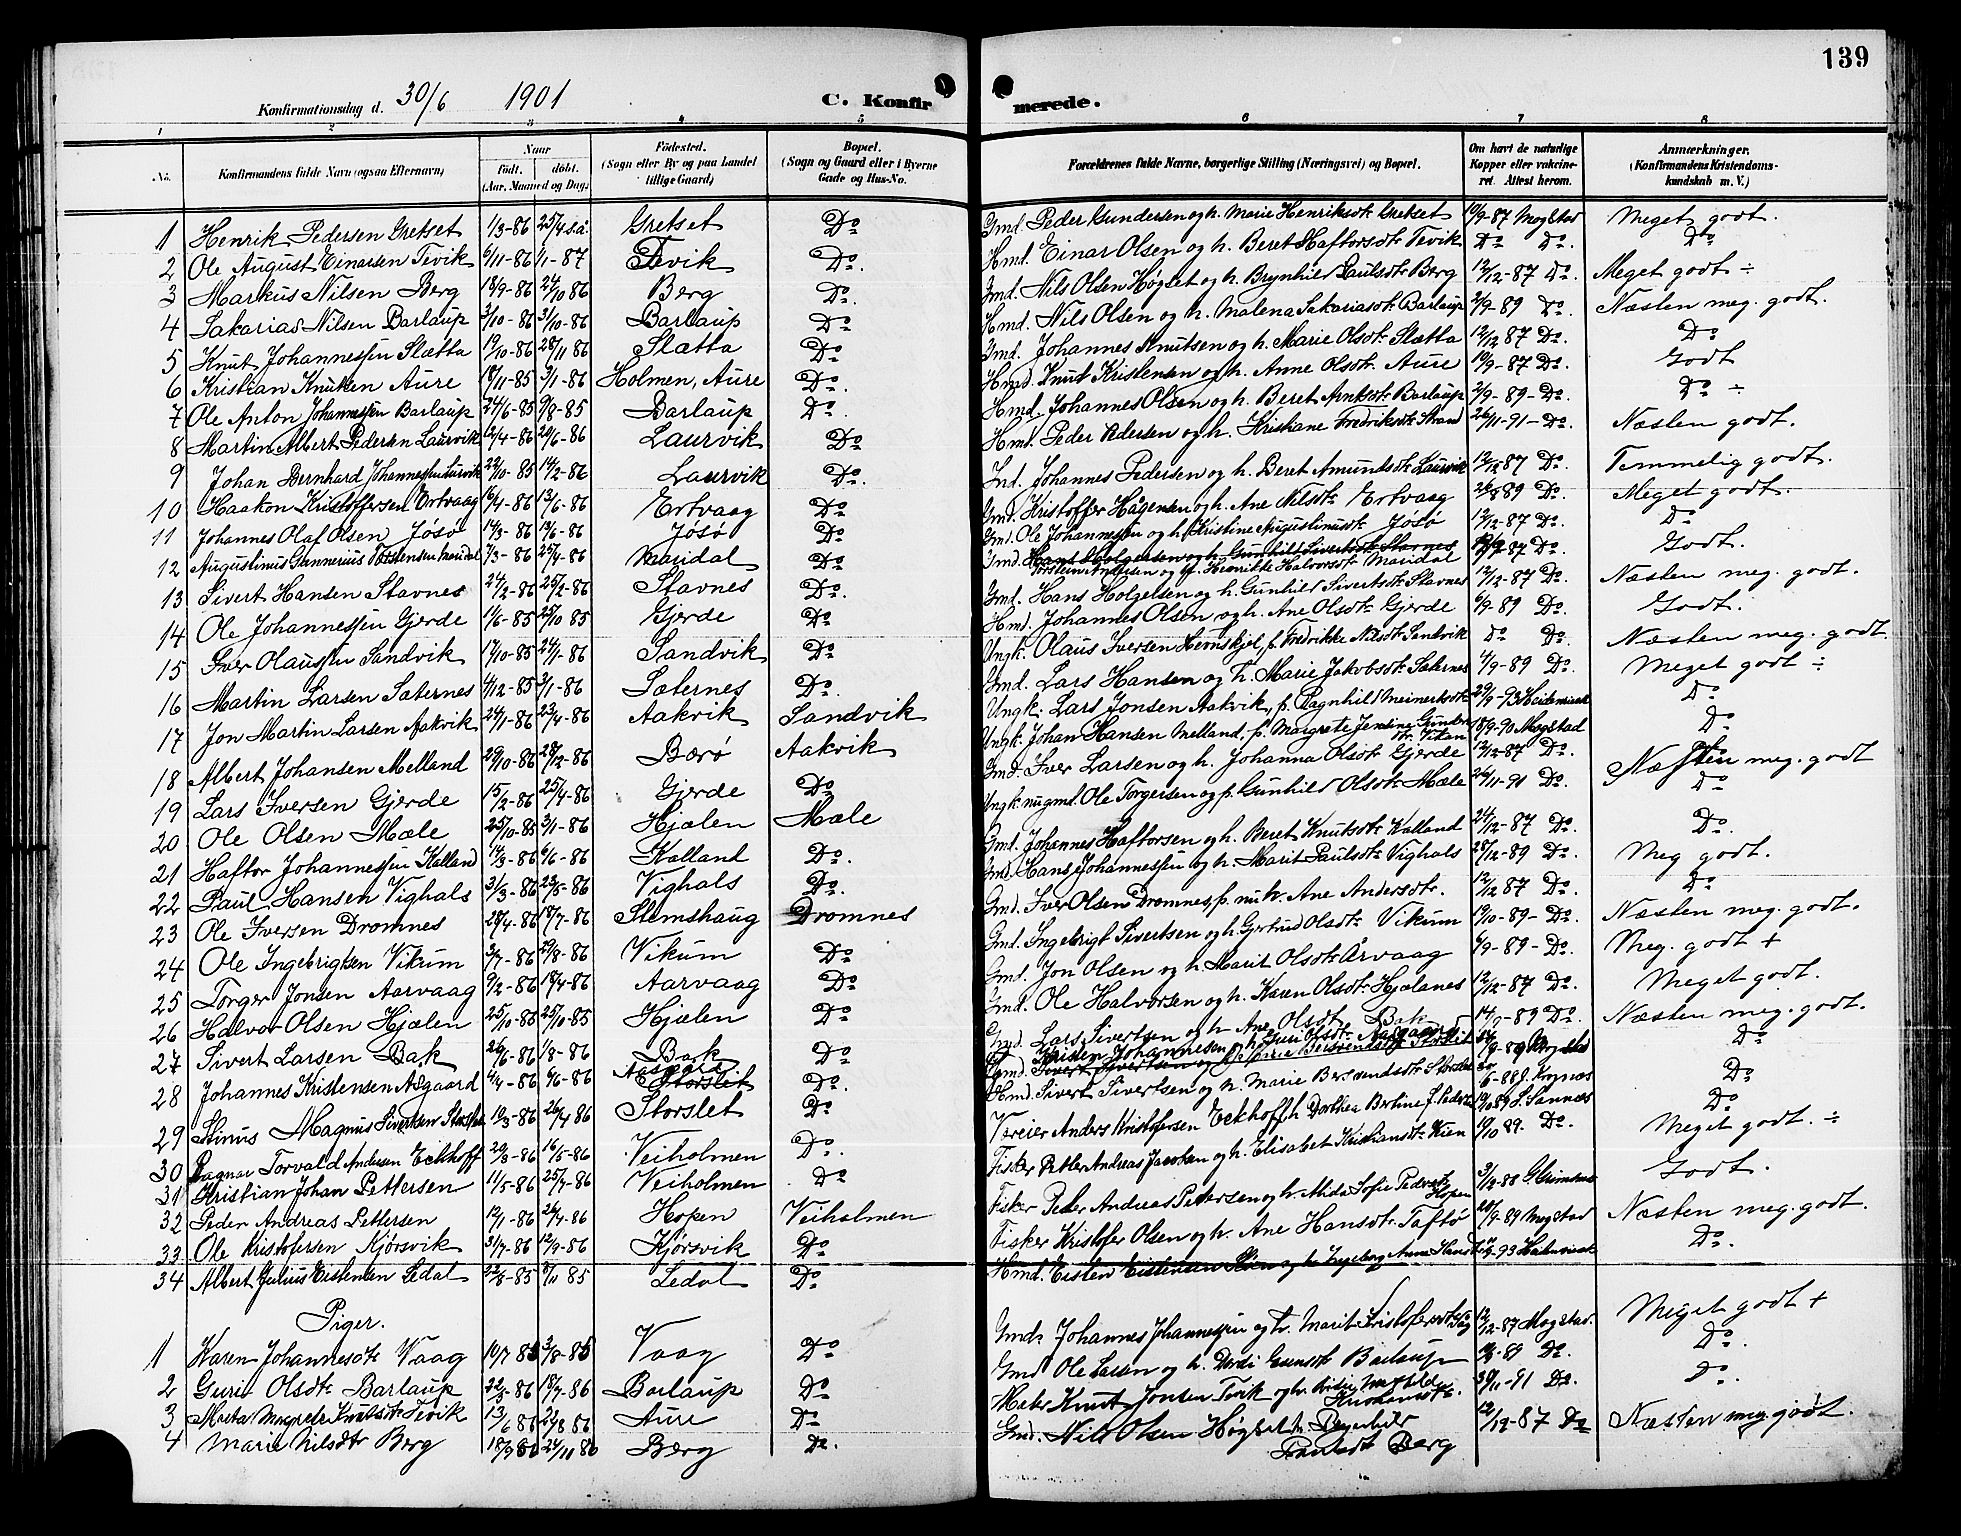 139
Konfirmationsdag d. 30/6 1901 C. Konfirmerede.
1 2 3 4 5 6 7 8
No. Konfirmandens fulde Navn (ogsaa Efternavn) Naar født. døbt. (Aar, Maaned og Dag) Fødested. (Sogn eller By og paa Landet tillige Gaard) Bopæl. (Sogn og Gaard eller i Byerne Gade og Hus-No. Forældrenes fulde Navne, borgerlige Stilling (Næringsvei) og Bopæl. Om havt de naturlige Kopper eller vakcineret. Attest herom. Anmærkninger, (Konfirmandens Kristendomskundskab m. V.)
1 Henrik Pedersen Gretset 1/3-86 25/4 s.a. Gretset Do Gmd. Peder Gundersen og h. Marie Henriksdt. Gretset 19/9-87 Mogstad Meget godt.
2 Ole August Einarsen Tevik 6/11-86 1/1-87 Tevik Do. Hmd. Einar Olsen og h. Beret Haftorsdt. Tevik Do Do. Do
3 Markus Nilsen Berg 18/9-86 24/10 86 Berg Do. Gmd. Nils Olsen Høgset og h. Brynhild Paulsdt. Berg 12/12-87 Do. Meget godt ÷
4 Sakarias Nilsen Barlaup 3/10-86 31/10-86 Barlaup Do. Hmd. Nils Olsen og h. Malena Sakariasdt. Barlaup 2/9-89 Do. Næsten meg. godt.
5 Knut Johannessen Slætta 19/10-86 28/11 86 Slætta Do. Gmd. Johannes Knutsen og h. Marie Olsdt. Slætta 12/12 87 Do. Do
6 Kristian Knutsen Aure 18/11-85 3/1-86 Holmen, Aure Do. Hmd. Knut Kristensen og h. Anne Olsdt. Aure 19/9-87 Do. Godt
7 Ole Anton Johannessen Barlaup 24/6-85 9/8-85 Barlaup Do. Hmd. Johannes Olsen og h. Beret Arntsdt. Barlaup 2/9-89-Do. Do ÷
8 Martin Albert Pedersen Laurvik 12/4-86 20/6-86 Laurvik Do Hmd. Peder Pedersen og h. Kristiane Fredriksdt. Strand 26/11-91-Do. Næsten godt.
9 Johan Bernhard Johannessen Laurvik 22/10-85 14/2-86 Laurvik Do. Ind. Johannes Pedersen og h. Beret Amundsdt. Laurvik 12/12 87 Do. Temmelig godt.
10 Haakon Kristoffersen Ertvaag 16/4-86 13/6-86 Ertvaag Do Gmd. Kristoffer Hågensen og h. Ane Nilsdt. Ertvaag 26/8 89 Do. Meget godt.
11 Johannes Olaf Olsen Jøsø 14/3-86 13/6-86 Jøsø Do Gmd. Ole Johannessen og h. Kristine Augustinusdt. Jøsø 12/12-87 Do. Do
12 Augustinus Gunnerius Torstensen Maudal 7/3-86 25/4-86 Maudal Do Gmd. Hans Holgersen og h. Gunhild Sivertsdt. Stavnes
Torstein Andersen og h. Henrikke Halvorsdt. Maudal 87 Do. Godt.
13 Sivert Hansen Stavnes 24/2-86 25/2-86 Stavnes Do Gmd. Hans Holgelsen og h. Gunhild Sivertsdt. Stavnes 12/12-87 Do. Næsten meg. godt.
14 Ole Johannessen Gjerde 1/6-85 25/10 85 Gjerde Do Hmd. Johannes Olsen og h. Ane Olsdt. Gjerde 6/9-89 Do. Godt.
15 Iver Olaussen Sandvik 17/10-85 24/1-86 Sandvik Do Ungk. Olaus Iversen Hemskjel, p. Fredrikke Nilsdt. Sandvik Do Do. Næsten meg. godt
16 Martin Larsen Sæternes 4/12-85 3/1-86 Sæternes Do. Gmd. Lars Hansen og h. Marie Jakobsdt. Sæternes 4/9-89 Do. Meget godt ÷
17 Jon Martin Larsen Aakvik 24/1-86 23/4-86 Aakvik Sandvik Ungk. Lars Jonsen Aakvik, p. Ragnhild Meinertsdt. 29/9-93 Do
18 Albert Johansen Melland 29/10-86 28/12-86 Bærø Aakvik Ungk. Johan Hansen Melland, p. Margrete Jensine Gundersdt. 8/9-90 Mogstad Do
19 Lars Iversen Gjerde 15/2-86 25/4-86 Gjerde Do Gmd. Iver Larsen og h. Johanna Olsdt. Gjerde 12/12-87 Do. Næsten meg. godt
20 Ole Olsen Mæle 25/10-85 3/1-86 Hjælen Mæle Ungk. nu gmd. Ole Torgersen og p. Gunhild Olsdt. Mæle 26/11-91 Do. Do
21 Haftor Johannessen Kalland 14/3-86 6/6-86 Kalland Do. Gmd. Johannes Haftorsen og h. Beret Knutsdt. Kalland 24/12-87 Do. Do.
22 Paul Hansen Vighals 3/3-86 23/5-86 Vighals Do. Gmd. Hans Johannessen og h. Marit Paulsdt. Vighals 28/12-89 Do. Meg godt.
23 Ole Iversen Dromnes 28/4-86 18/7-86 Stemshaug Dromnes Gmd. Iver Olsen Dromnes, p. nu h. Ane Andersdt. 12/12 87 Do. Do
24 Ole Ingebrigtsen Vikum 3/7-86 29/8-86 Vikum Do Gmd. Ingebrigt Sivertsen og h. Gjertrud Olsdt. Vikum 19/10-89-Do. Næsten meg. godt.
25 Torger Jonsen Aarvaag 9/2-86 18/4-86 Aarvaag Do Gmd. Jon Olsen og h. Marit Olsdt. Årvaag 6/9-89-Do. Meg. godt +
26 Halvor Olsen Hjælen 25/10-86 25/10-85 Hjælen Do Gmd. Ole Halvorsen og h. Karen Olsdt. Hjælanes 12/12-87 Do. Meget godt.
27 Sivert Larsen Bak 26/6-86 1/8-86 Bak Do Gmd. Lars Sivertsen og h. Ane Olsdt. Bak 89 Do. Næsten meg. godt.
28 Johannes Kristensen Asgaard 4/4-86 6/6-86 Aasgaard Storslet Do. Kristen Johannesen og h. Guri Olsdt. Aasgaard
Sivert Sivertsen og h. Marie Bersvendsdt. Storslet 89 Do
29 Stinus Magnus Sivertsen Storslet 10/3-86 26/4 86 Storslet Do Hmd. Sivert Sivertsen og h. Marie Bersvendsdt. Storslet Do
30 Ragnar Torvald Andersen Eckhoff 20/3-86 16/5-86 Veiholmen Do. Veveier Anders Kristofersen Eckhoff h. Dorthea Bertine J. 89 Do
31 Kristian Johan Pettersen 11/5-86 25/7-86 Veiholmen Do Fisker Petter Andreas Jacobsen og h. Elisabet Kristiansdt. 19/10 89. Do. Meget godt. ÷
32 Peder Andreas Pettersen 12/1-86 26/4-86 Hopen Veiholmen Fisker Peder Andreas Petersen og h. Sofie Pedersdt. Hopen 3/2-88 Godt.
33 Ole Kristofersen Kjørsvik 31/7-86 12/9-86 Kjørsvik Do Fisker Kristofer Olsen og h. Ane Hansdt. Taftø 20/9-89 Mogstad Næsten meg. godt.
34 Albert Julius Eistensen Ledal 22/8-85 8/11 85 Ledal Do Hmd. Eisten Eistensen og h. Ingeborg Anne Hansdt. 93 Do.
Piger.
1 Karen Johannesdt. Vaag 10/7 85 3/8-85 Vaag Do Gmd. Johannes Johannessen og h. Marit Kristofersdt. Vaag 12/12-87 Mogstad. Meget godt +
2 Guri Olsdt. Barlaup 22/3-86 18/7-86 Barlaup Do Gmd. Ole Larsen og h. Barlaup 89 Do. Do.
3 Meta Magrete Knutsdt. Tevik 13/6 86 22/8 86 Aure Do Knut Jonsen Tevik og h. 30/11-91 Do. Do.
4 Marie Nilsdt. Berg 18/9 86 24/10 86 Berg Do. Gmd. Nils Olsen Høgset h. Paulsdt Berg 12/12-87 Do Næsten meg. godt.